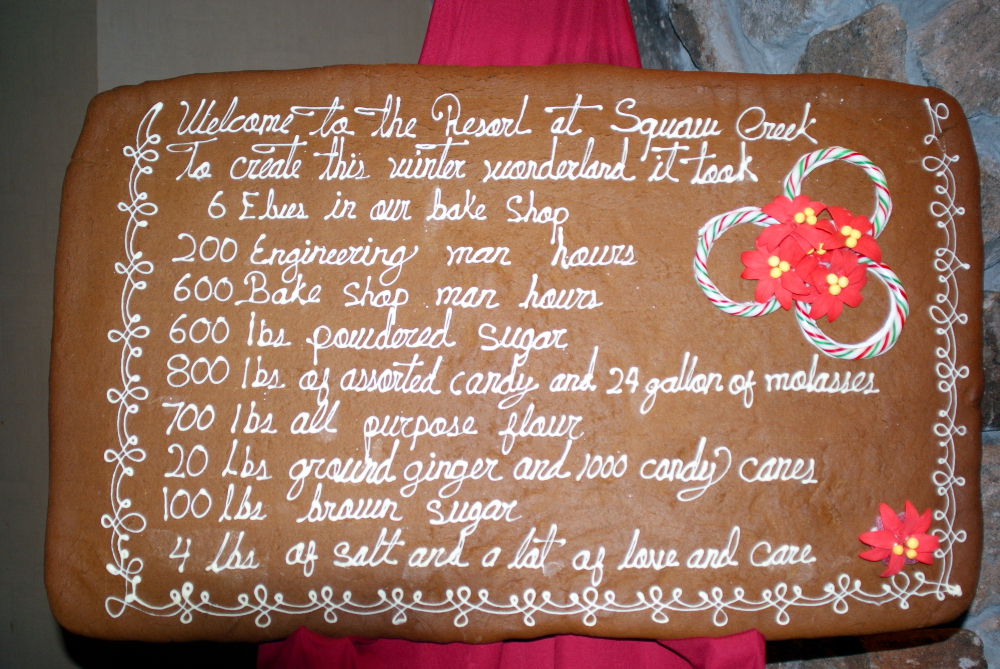 Welcome to the Resort at Squaw Creek
To create this winter wonderland it took
6 Elves in our bake shop
200 Engineering man hours
600 Bake shop man hours
600 lbs powdered sugar
800 lbs of assorted candy and 24 gallon of molasses
700 lbs all purpose flour
20 Lbs ground ginger and 1000 candy canes
100 lbs brown sugar
4 lbs of salt and a lot of love and care